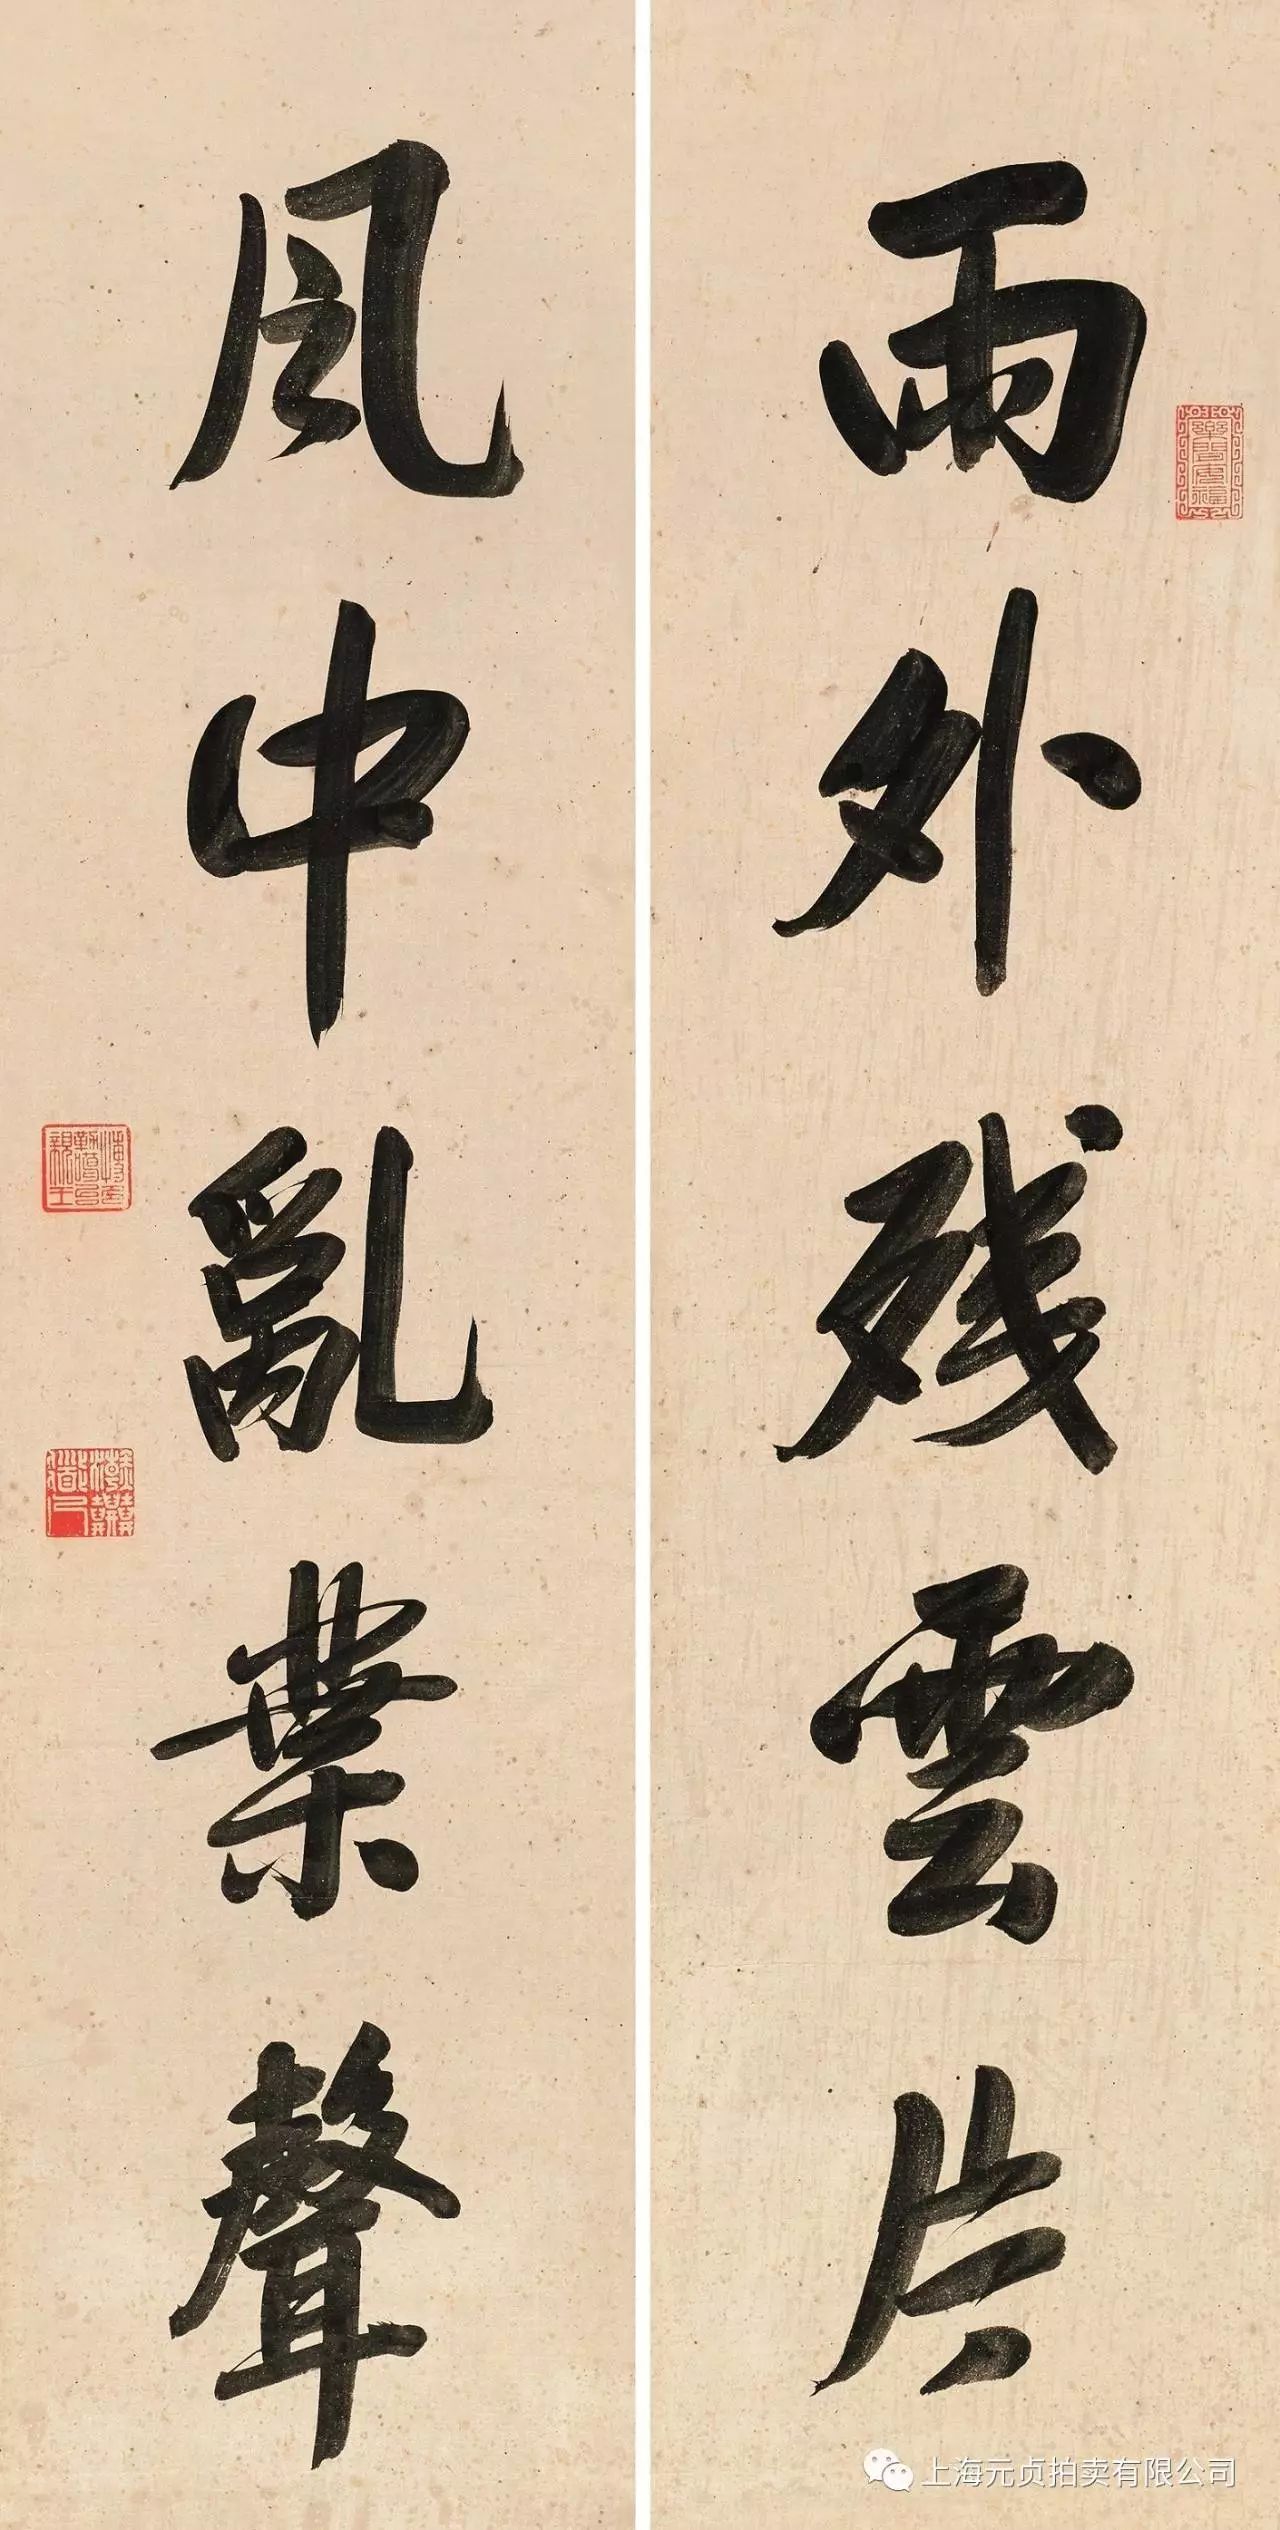 雨外残雲片
風中亂葉聲
上海元贞拍卖有限公司